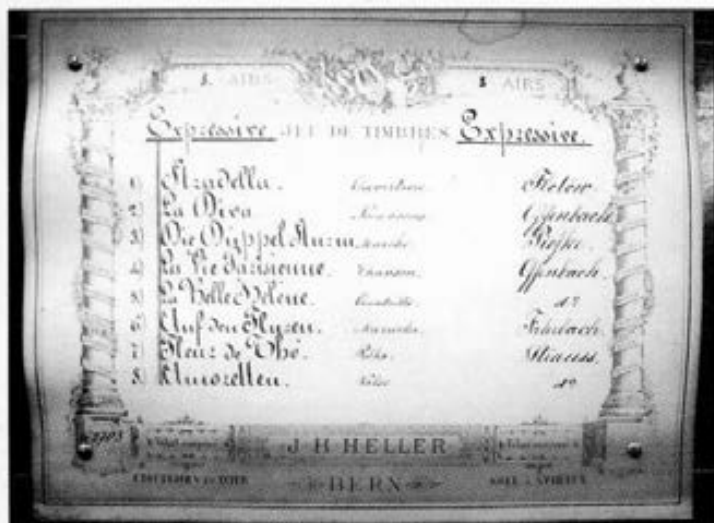 8. AIRS 8 AIRS
Expressive JEU DE TIMBRES Expressive.
1) Stradella. Ouverture Flotow.
2) La Diva Offenbach.
3) Die Düppel Sturm Marche Piefke.
4) La Vie Parisienne. Chanson. Offenbach.
5) La Belle Hélène. Quadrille. do
6) Auf den Fluren. Mazurka. Fahrbach.
7) Fleur de Thé. Polka. Strauss.
8) Amoretten. Valse do
J H HELLER
BERN